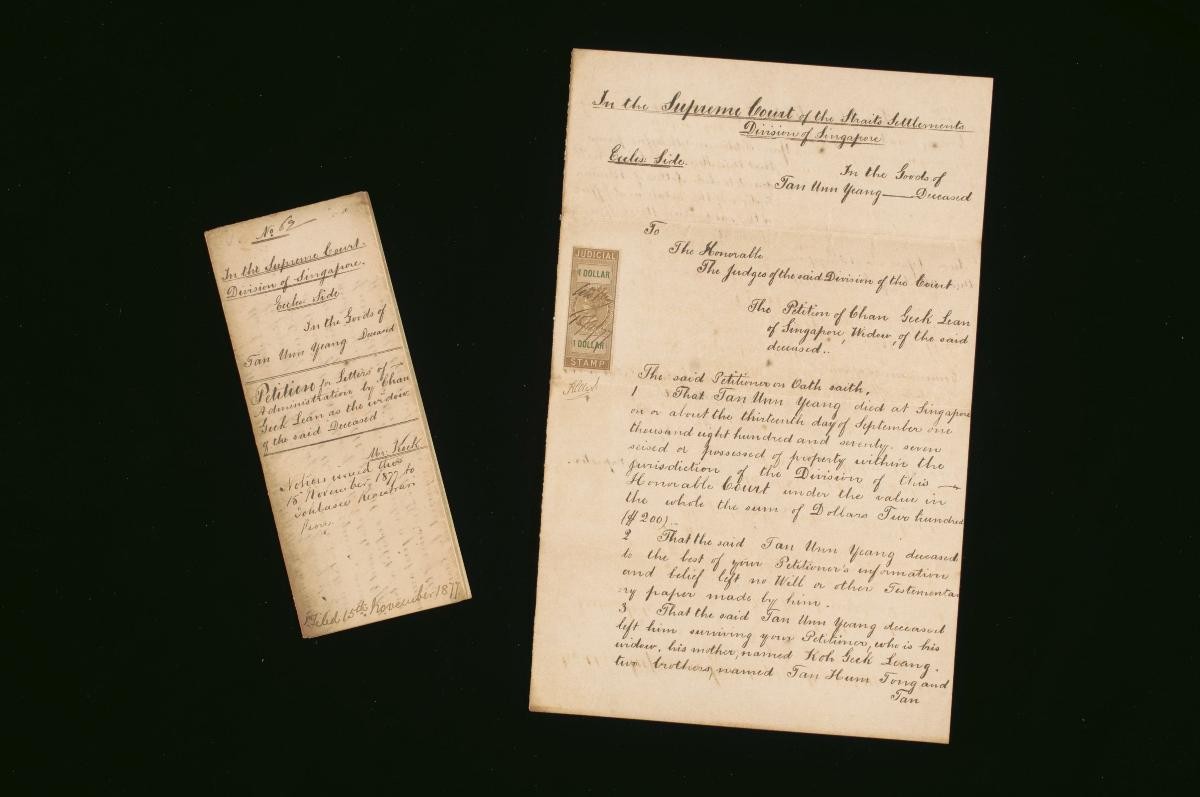 No 69
In the Supreme Court
Division of Singapore.
Eccles: Side
In the Goods of
Tan Unn Yeang Deceased
Petition for Letters of
Administration by Chan
Geek Lean as the widow
of the said Deceased
Mr. Koek
Notices issued this
15 November 1877 to
Filed 15th November 1877
In the Supreme Court of the Straits Settlements
Division of Singapore
Eccles: Side.
In the Goods of
Tan Unn Yeang Deceased
To
The Honorable
The Judges of the said Division of the Court.
JUDICIAL
1 DOLLAR
1 DOLLAR
STAMP
The Petition of Chan Geek Lean
of Singapore, Widow, of the said
deceased..
The said Petitioner on Oath saith,
1 That Tan Unn Yeang died at Singapore
on or about the thirteenth day of September one
thousand eight hundred and seventy seven
seised or possessed of property within the
jurisdiction of the Division of this
Honorable Court under the value in
the whole the sum of Dollars Two hundred
($200)..
2 That the said Tan Unn Yeang deceased
to the best of your Petitioner's information
and belief left no Will or other Testamenta
ry paper made by him.
3 That the said Tan Unn Yeang deceased
left him surviving your Petitioner, who is his
widow, his mother, named Koh Geek Leang.
two brothers, named Tan Hum Tong and
Tan